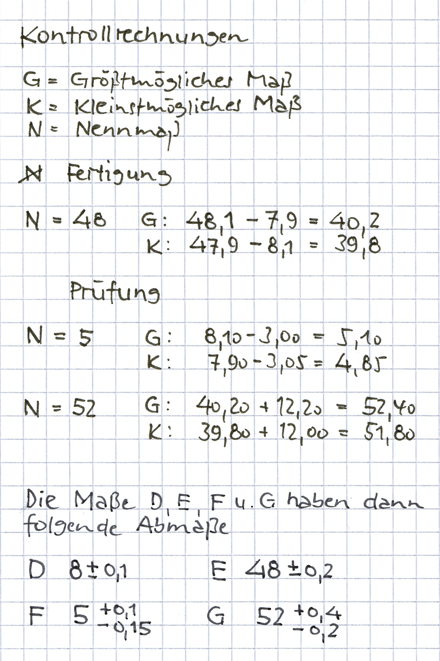 Kontrollrechnungen
G = Größtmögliches Maß
K = Kleinstmögliches Maß
N = Nennmaß
Fertigung
N = 48 G: 48,1 - 7,9 = 40,2
K: 47,9 - 8,1 = 39,8
Prüfung
N = 5 G: 8,10 - 3,00 = 5,10
K: 7,90 - 3,05 = 4,85
N = 52 G: 40,20 + 12,20 = 52,40
K: 39,80 + 12,00 = 51,80
Die Maße D, E, F u. G haben dann
folgende Abmaße
D 8 ± 0,1 E 48 ± 0,2
F 5 +0,1 -0,15 G 52 +0,4 -0,2